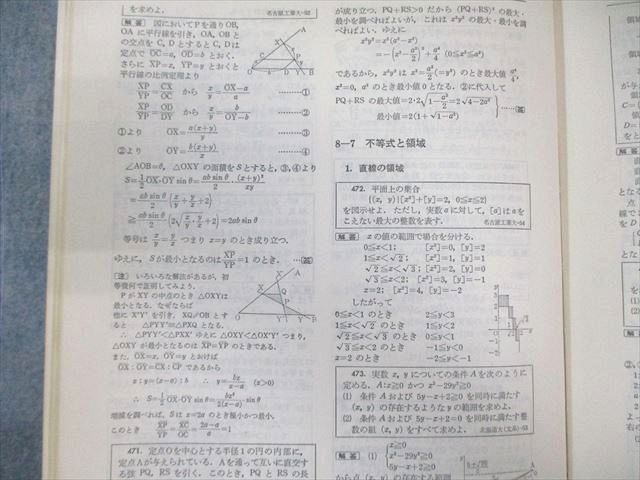 を求めよ.
名古屋工業大-52
解答 図においてPを通りOB,
OA に平行線を引き, OA, OB と
の交点を C, D とすると C, D は
定点で OC=a, OD=b とおく.
さらに XP=x, YP=y とおくと
平行線の比例定理より
XP/YP=CX/OC から x/y=(OX-a)/a ………①
XP/YP=OD/DY から x/y=b/(OY-b) ………②
①より OX=a(x+y)/y ………③
②より OY=b(x+y)/x ………④
∠AOB=θ, △OXY の面積をSとすると, ③, ④より
S=1/2 OX·OY sin θ=ab sin θ/2·(x+y)²/xy
=ab sin θ/2(x/y+y/x+2)
≧ab sin θ/2(2√(x/y·y/x)+2)=2ab sin θ
等号は x/y=y/x つまり x=y のとき成り立つ.
ゆえに, Sが最小となるのは XP/YP=1 のとき. …(答)
〔注〕 いろいろな解法があるが, 初
等幾何で証明してみよう.
P が XY の中点のとき △OXYは
最小となる. なぜならば
他に X′Y′ を引き, XQ∥OB とす
ると △PYY′≡△PXQ となる.
∴ △PYY′<△PXX′ ゆえに △OXY<△OX′Y′ つまり,
△OXY が最小となるのは XP=YP のときである.
また, OX=x, OY=y とおけば
OX:OY=CX:CP であるから
x:y=(x-a):b ∴ y=bx/(x-a) (x>0)
∴ S=1/2 OX·OY sin θ=bx²/2(x-a) sin θ
増減を調べれば, Sは x=2a のとき極小かつ最小.
このとき XP/YP=XC/OC=(2a-a)/a=1
471. 定点Oを中心とする半径1の円の内部に,
定点Aが与えられている. Aを通って互いに直交す
る弦 PQ, RS を引く. このとき, PQ と RS の長
が成り立つ. PQ+RS>0 だから (PQ+RS)² の最大・
最小を調べればよいが, これは x²y² の最大・最小を調
べればよい. ゆえに
x²y²=x²(a²-x²)
=-(x²-a²/2)²+a⁴/4 (0≦x²≦a²)
であるから, x²y² は x²=a²/2(=y²) のとき最大値 a⁴/4,
x²=0, a² のとき最小値 0 となる. ②に代入して
PQ+RS の最大値=2·2√(1-a²/2)=2√(4-2a²)
最小値=2(1+√(1-a²)) ……(答)
8―7 不等式と領域
1. 直線の領域
472. 平面上の集合
{(x, y)|[x²]+[y]=2, 0≦x≦2}
を図示せよ. ただし, 実数aに対して, [a]はaを
こえない最大の整数を表す.
名古屋工業大-54
解答 xの値の範囲で場合を分ける.
0≦x<1; [x²]=0, [y]=2
1≦x<√2; [x²]=1, [y]=1
√2≦x<√3; [x²]=2, [y]=0
√3≦x<2; [x²]=3, [y]=-1
x=2; [x²]=4, [y]=-2
したがって
0≦x<1 のとき 2≦y<3
1≦x<√2 のとき 1≦y<2
√2≦x<√3 のとき 0≦y<1
√3≦x<2 のとき -1≦y<0
x=2 のとき -2≦y<-1
473. 実数 x, y についての条件Aを次のように
定める. A:x≧0 かつ x²-29y²≧0
(1) 条件Aおよび 5y-x+2≧0 を同時に満たす
(x, y) の存在するようなyの範囲を求めよ.
(2) 条件Aおよび 5y-x+2=0 を同時に満たす整
数の組 (x, y) をすべて求めよ.
北海道大(文系)-53
解答
(1) x≧0
x²-29y²≧0
5y-x+2≧0
から点 (x, y) の存在する